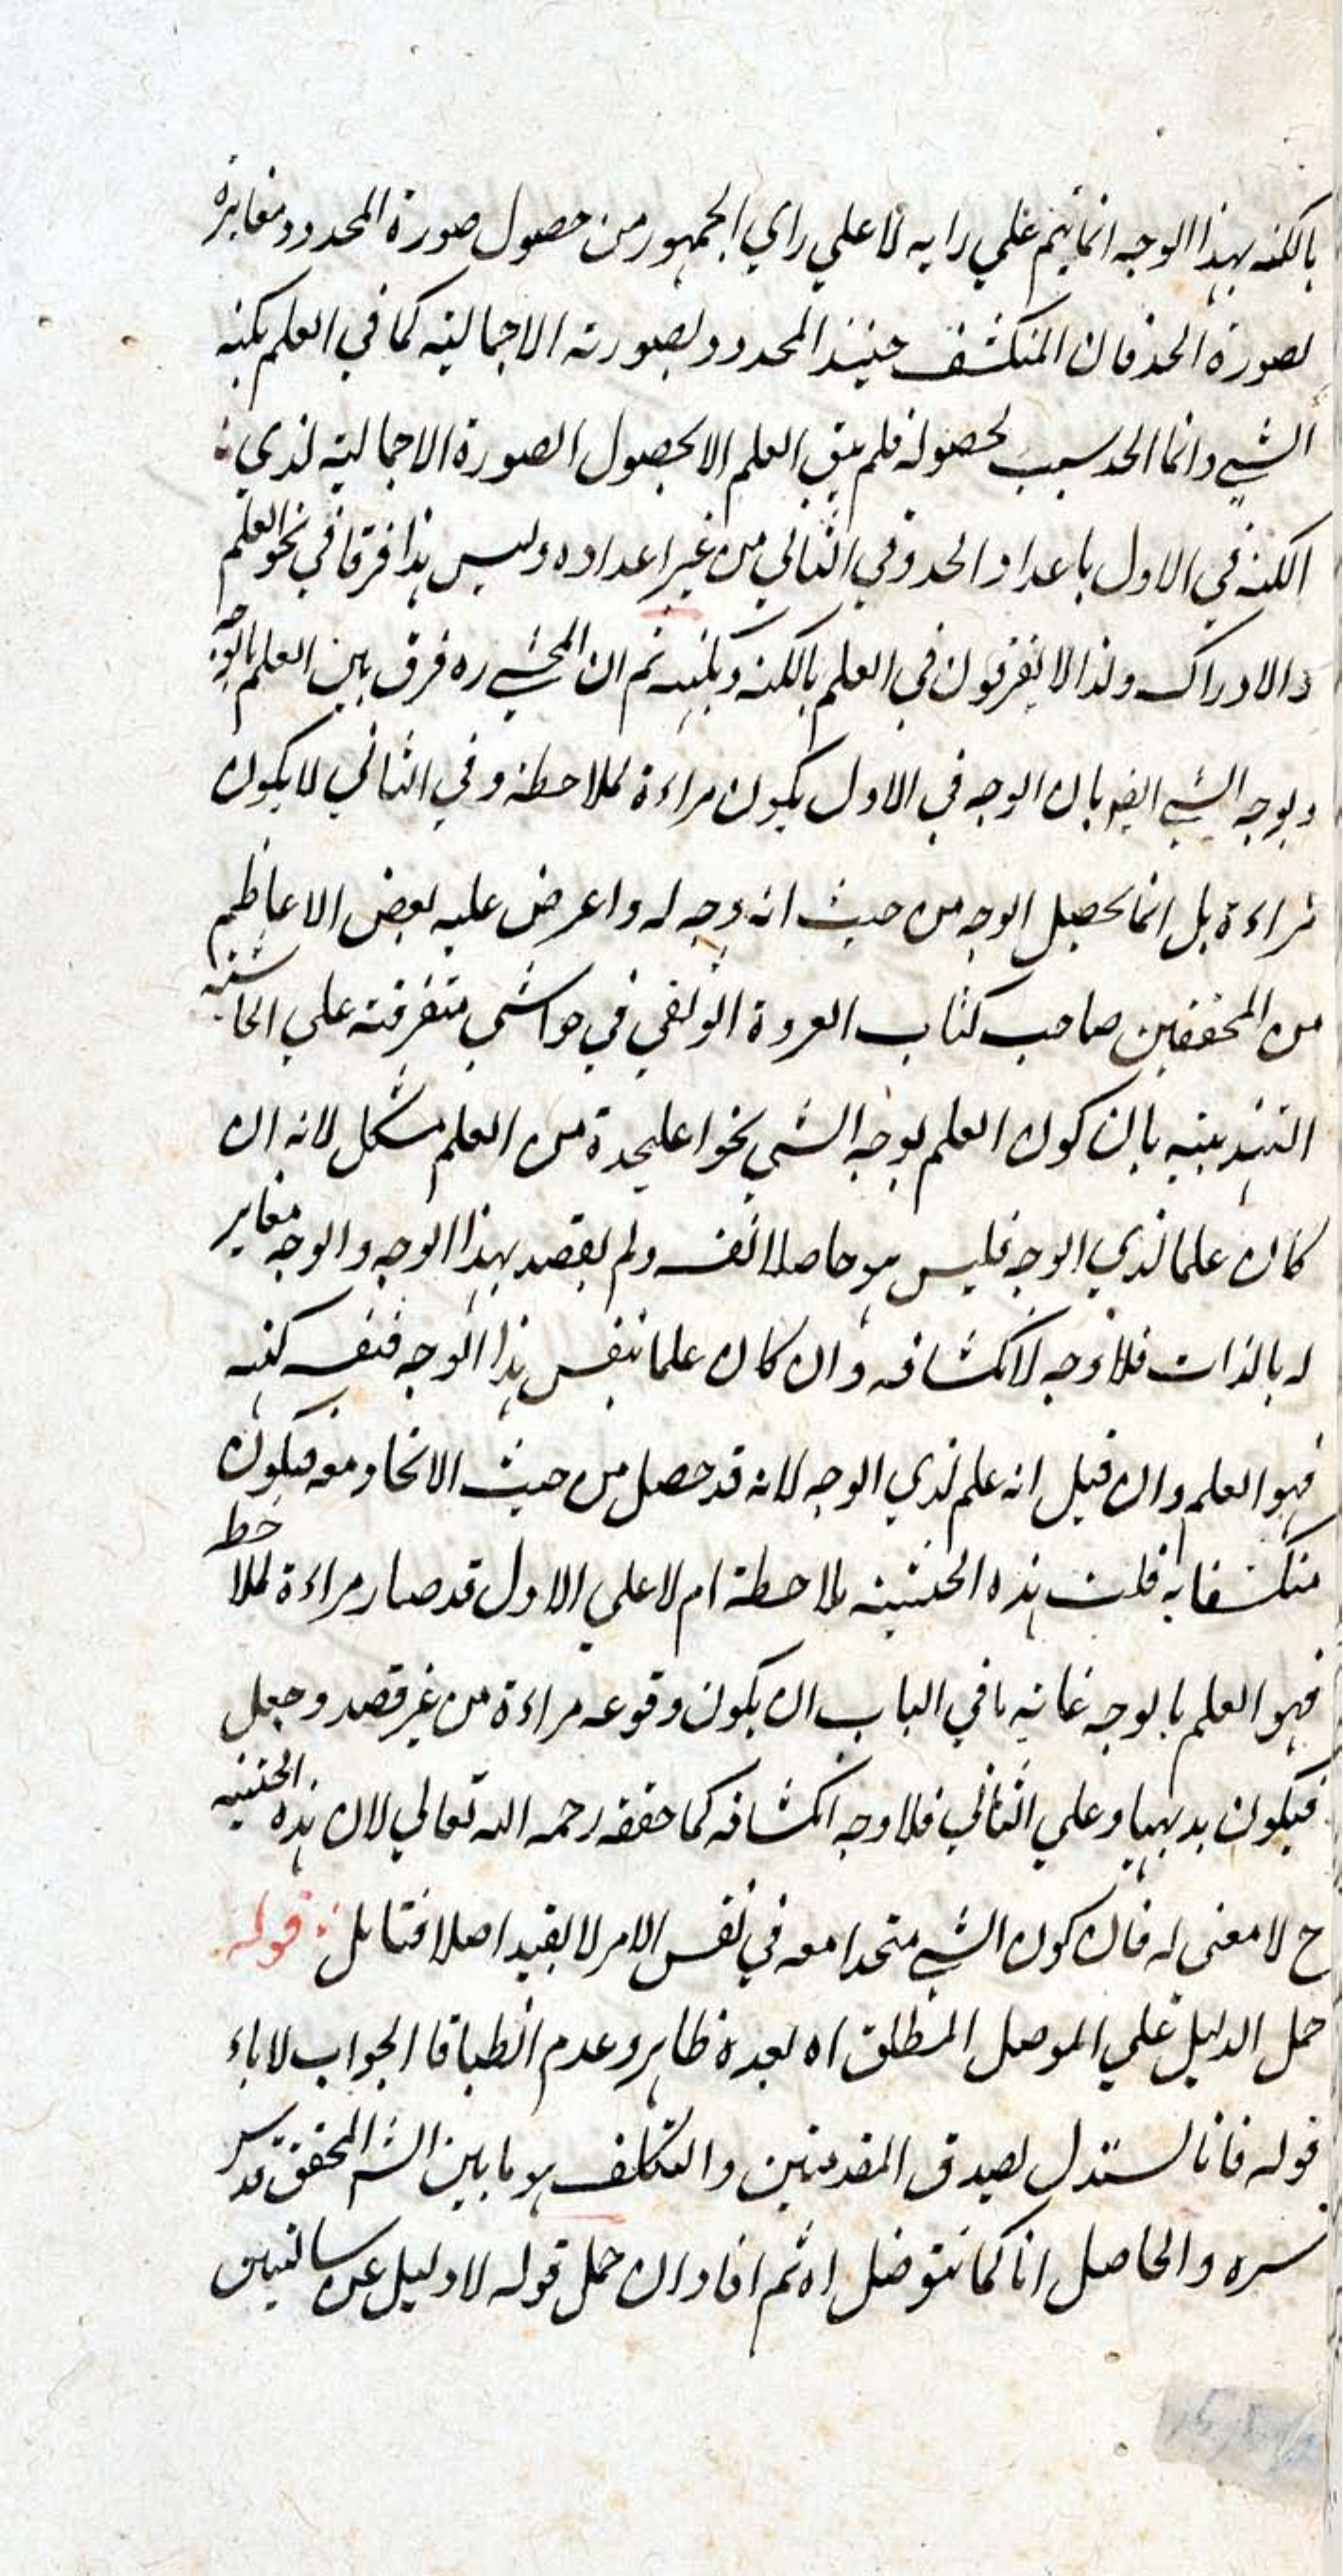 بالكنه بهذا الوجه انما يتم علي رايه لا علي راي الجمهور من حصول صورة المحدود مغايرة
لصورة الحد فان المنكشف حينئذ المحدود بصورته الاجمالية كما في العلم بكنه
الشي وانما الحد سبب لحصوله فلم يبق العلم الا بحصول الصورة الاجمالية لذي
الكنه في الاول باعداد الحد وفي الثاني من غير اعداده وليس هذا فرقا في نحو العلم
والادراك ولذا لا يفرقون في العلم بالكنه وبكنهه ثم ان المحشي ره فرق بين العلم بالوجه
وبوجه الشي ايضا بان الوجه في الاول يكون مراءة لملاحظة وفي الثاني لا يكون
مراءة بل انما يحصل الوجه من حيث انه وجه له واعرض عليه بعض الاعاظم
من المحققين صاحب كتاب العروة الوثقي في حواشي متفرقة علي الحاشية
التهذيبية بان كون العلم بوجه الشي نحوا عليحدة من العلم مشكل لانه ان
كان علما لذي الوجه فليس هو حاصلا انف ولم يقصد بهذا الوجه والوجه مغاير
له بالذات فلا وجه لانكشافه وان كان علما بنفس هذا الوجه فنفسه كنهه
فهو العلم وان قيل انه علم لذي الوجه لانه قد حصل من حيث الاتحاد معه فيكون
منكشفا به قلت هذه الحيثية ملاحظة ام لا علي الاول قد صار مراءة لملاحظة
فهو العلم بالوجه غاية ما في الباب ان يكون وقوعه مراءة من غير قصد وجعل
فيكون بديهيا وعلي الثاني فلا وجه انكشافه كما حققه رحمه الله تعالي لان هذه الحيثية
ح لا معنى له فان كون الشي متحدا معه في نفس الامر لا يفيد اصلا فتامل قوله
حمل الدليل علي الموصل المطلق اه بعده ظاهر وعدم انطباق الجواب لاباء
قوله فانا نستدل بصدق المقدمتين والتكلف هو ما بين الش المحقق قدس
سره والحاصل انا كما نتوصل اه ثم افاد ان حمل قوله لا دليل عن سالبتين